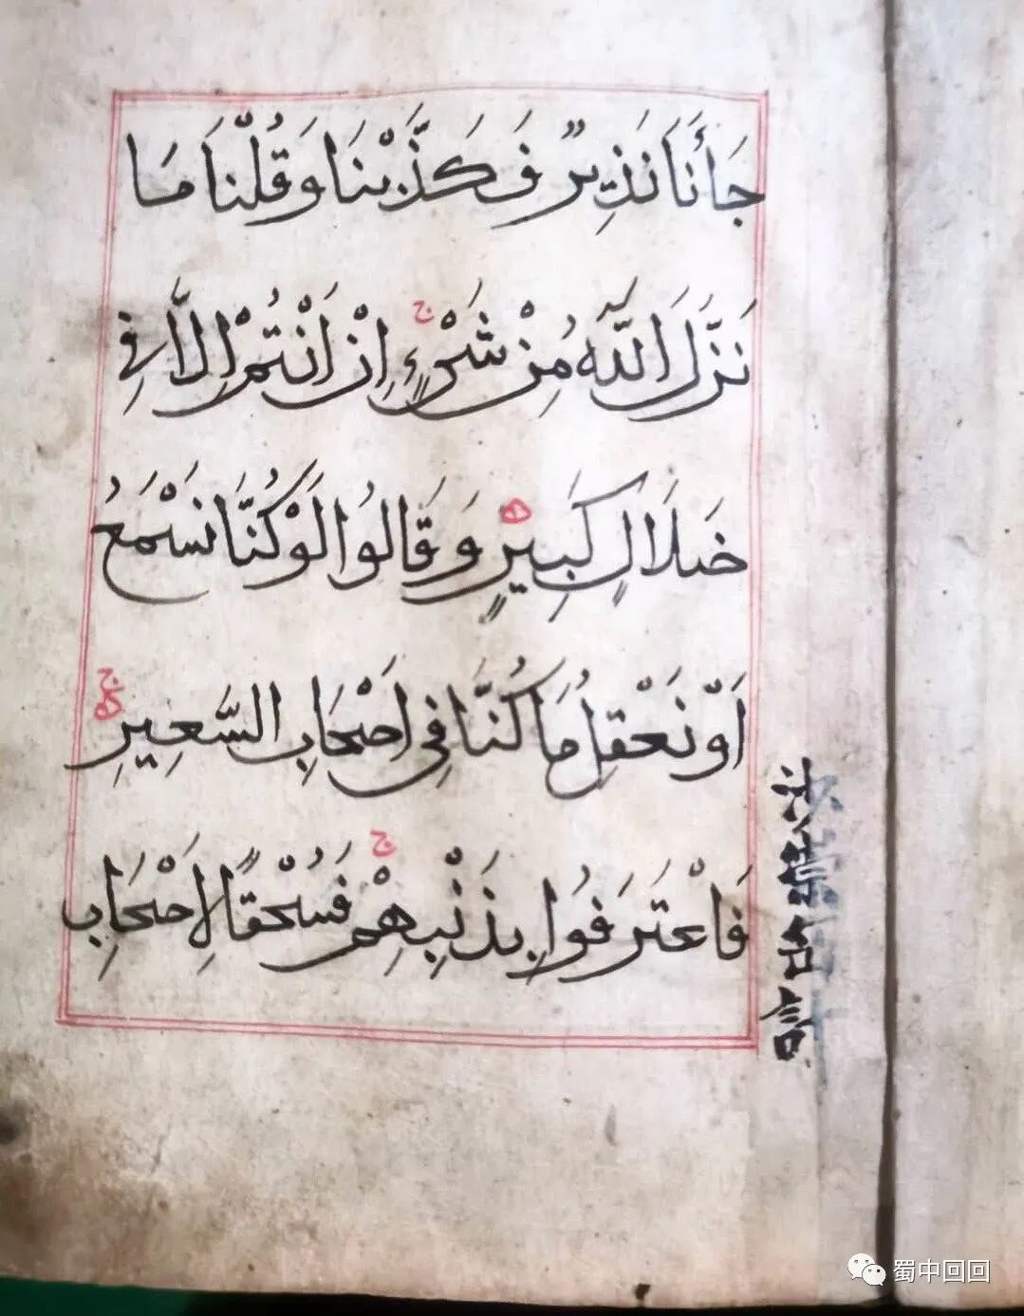 جَأَنَا نَذِيرٌ فَكَذَّبْنَا وَقُلْنَا مَا
نَزَّلَ اللّٰهُ مِنْ شَيْءٍ ج اِنْ اَنْتُمْ اِلَّا فِي
ضَلَالٍ كَبِيرٍ وَقَالُوا لَوْ كُنَّا نَسْمَعُ
اَوْ نَعْقِلُ مَا كُنَّا فِي اَصْحَابِ السَّعِيرِ ج
فَاعْتَرَفُوا بِذَنْبِهِمْ ج فَسُحْقًا لِاَصْحَابِ
蜀中回回